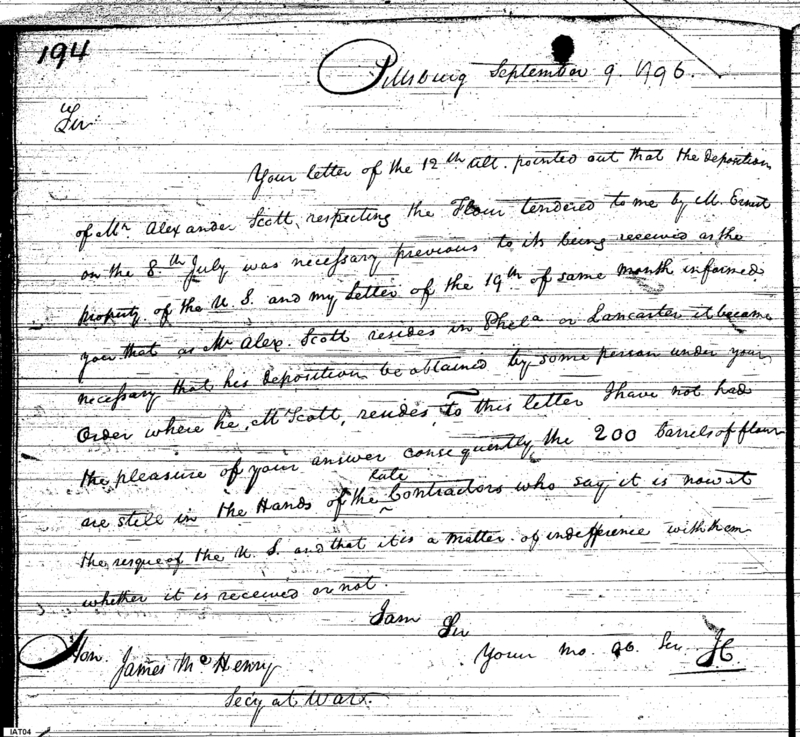 194
Pittsburg September 9. 1796.
Sir
Your letter of the 12th ult. pointed out that the deposition
of Mr. Alexander Scott, respecting the Flour tendered to me by M. Ernest
on the 8th July was necessary previous to its being received as the
property of the U. S. and my Letter of the 19th of same month informed
you that as Mr Alex. Scott resides in Phela or Lancaster it became
necessary that his deposition be obtained by some person under your
order where he, Mr Scott, resides, to this letter I have not had
the pleasure of your answer consequently the 200 barrels of flour
are still in the Hands of the late Contractors who say it is now at
the risque of the U. S. and that it is a matter of indifference with them
whether it is received or not.
I am Sir
Your mo. ob. Ser. JC
Hon. James McHenry
Secy at War.
IAT04